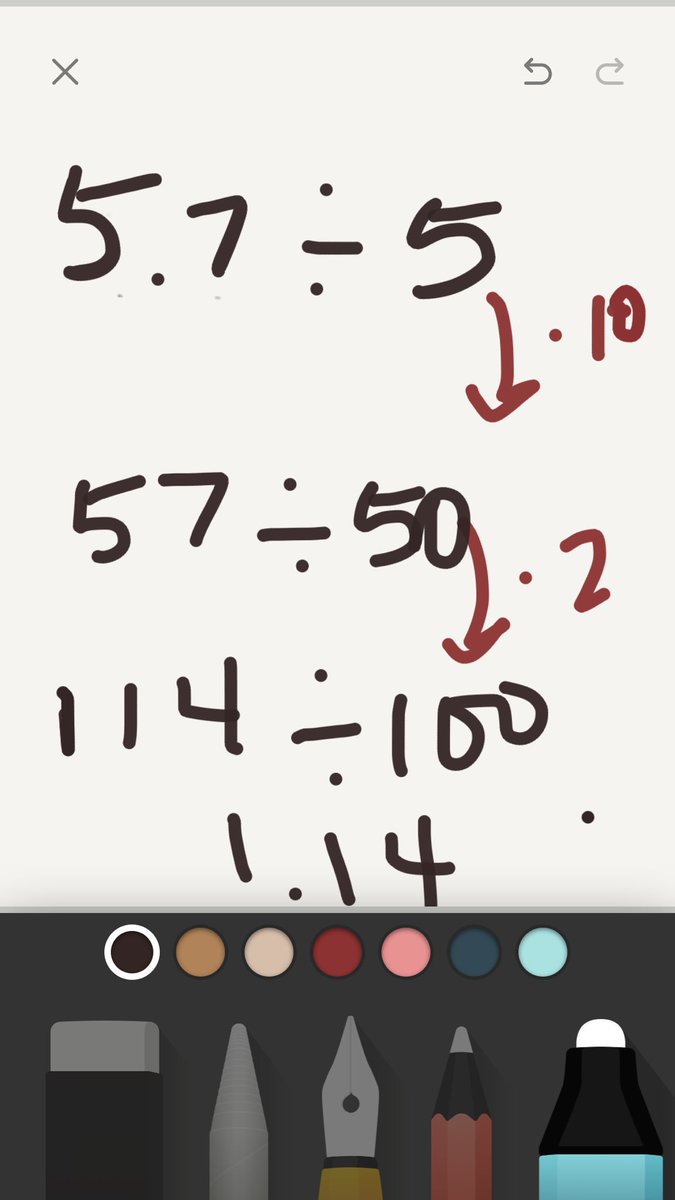 5.7 ÷ 5
· 10
57 ÷ 50
· 2
114 ÷ 100
1.14